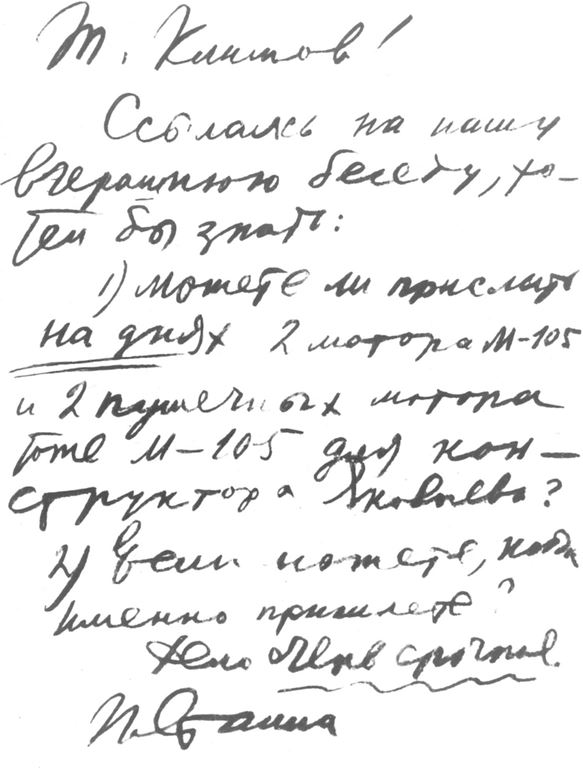 Т. Климов!
Ссылаясь на нашу
вчерашнюю беседу, хо-
тел бы знать:
1) можете ли прислать
на днях 2 мотора М-105
и 2 пушечных мотора
тоже М-105 для кон-
структора Яковлева?
2) Если можете, когда
именно пришлете?
Дело очень срочное.
И. Сталин